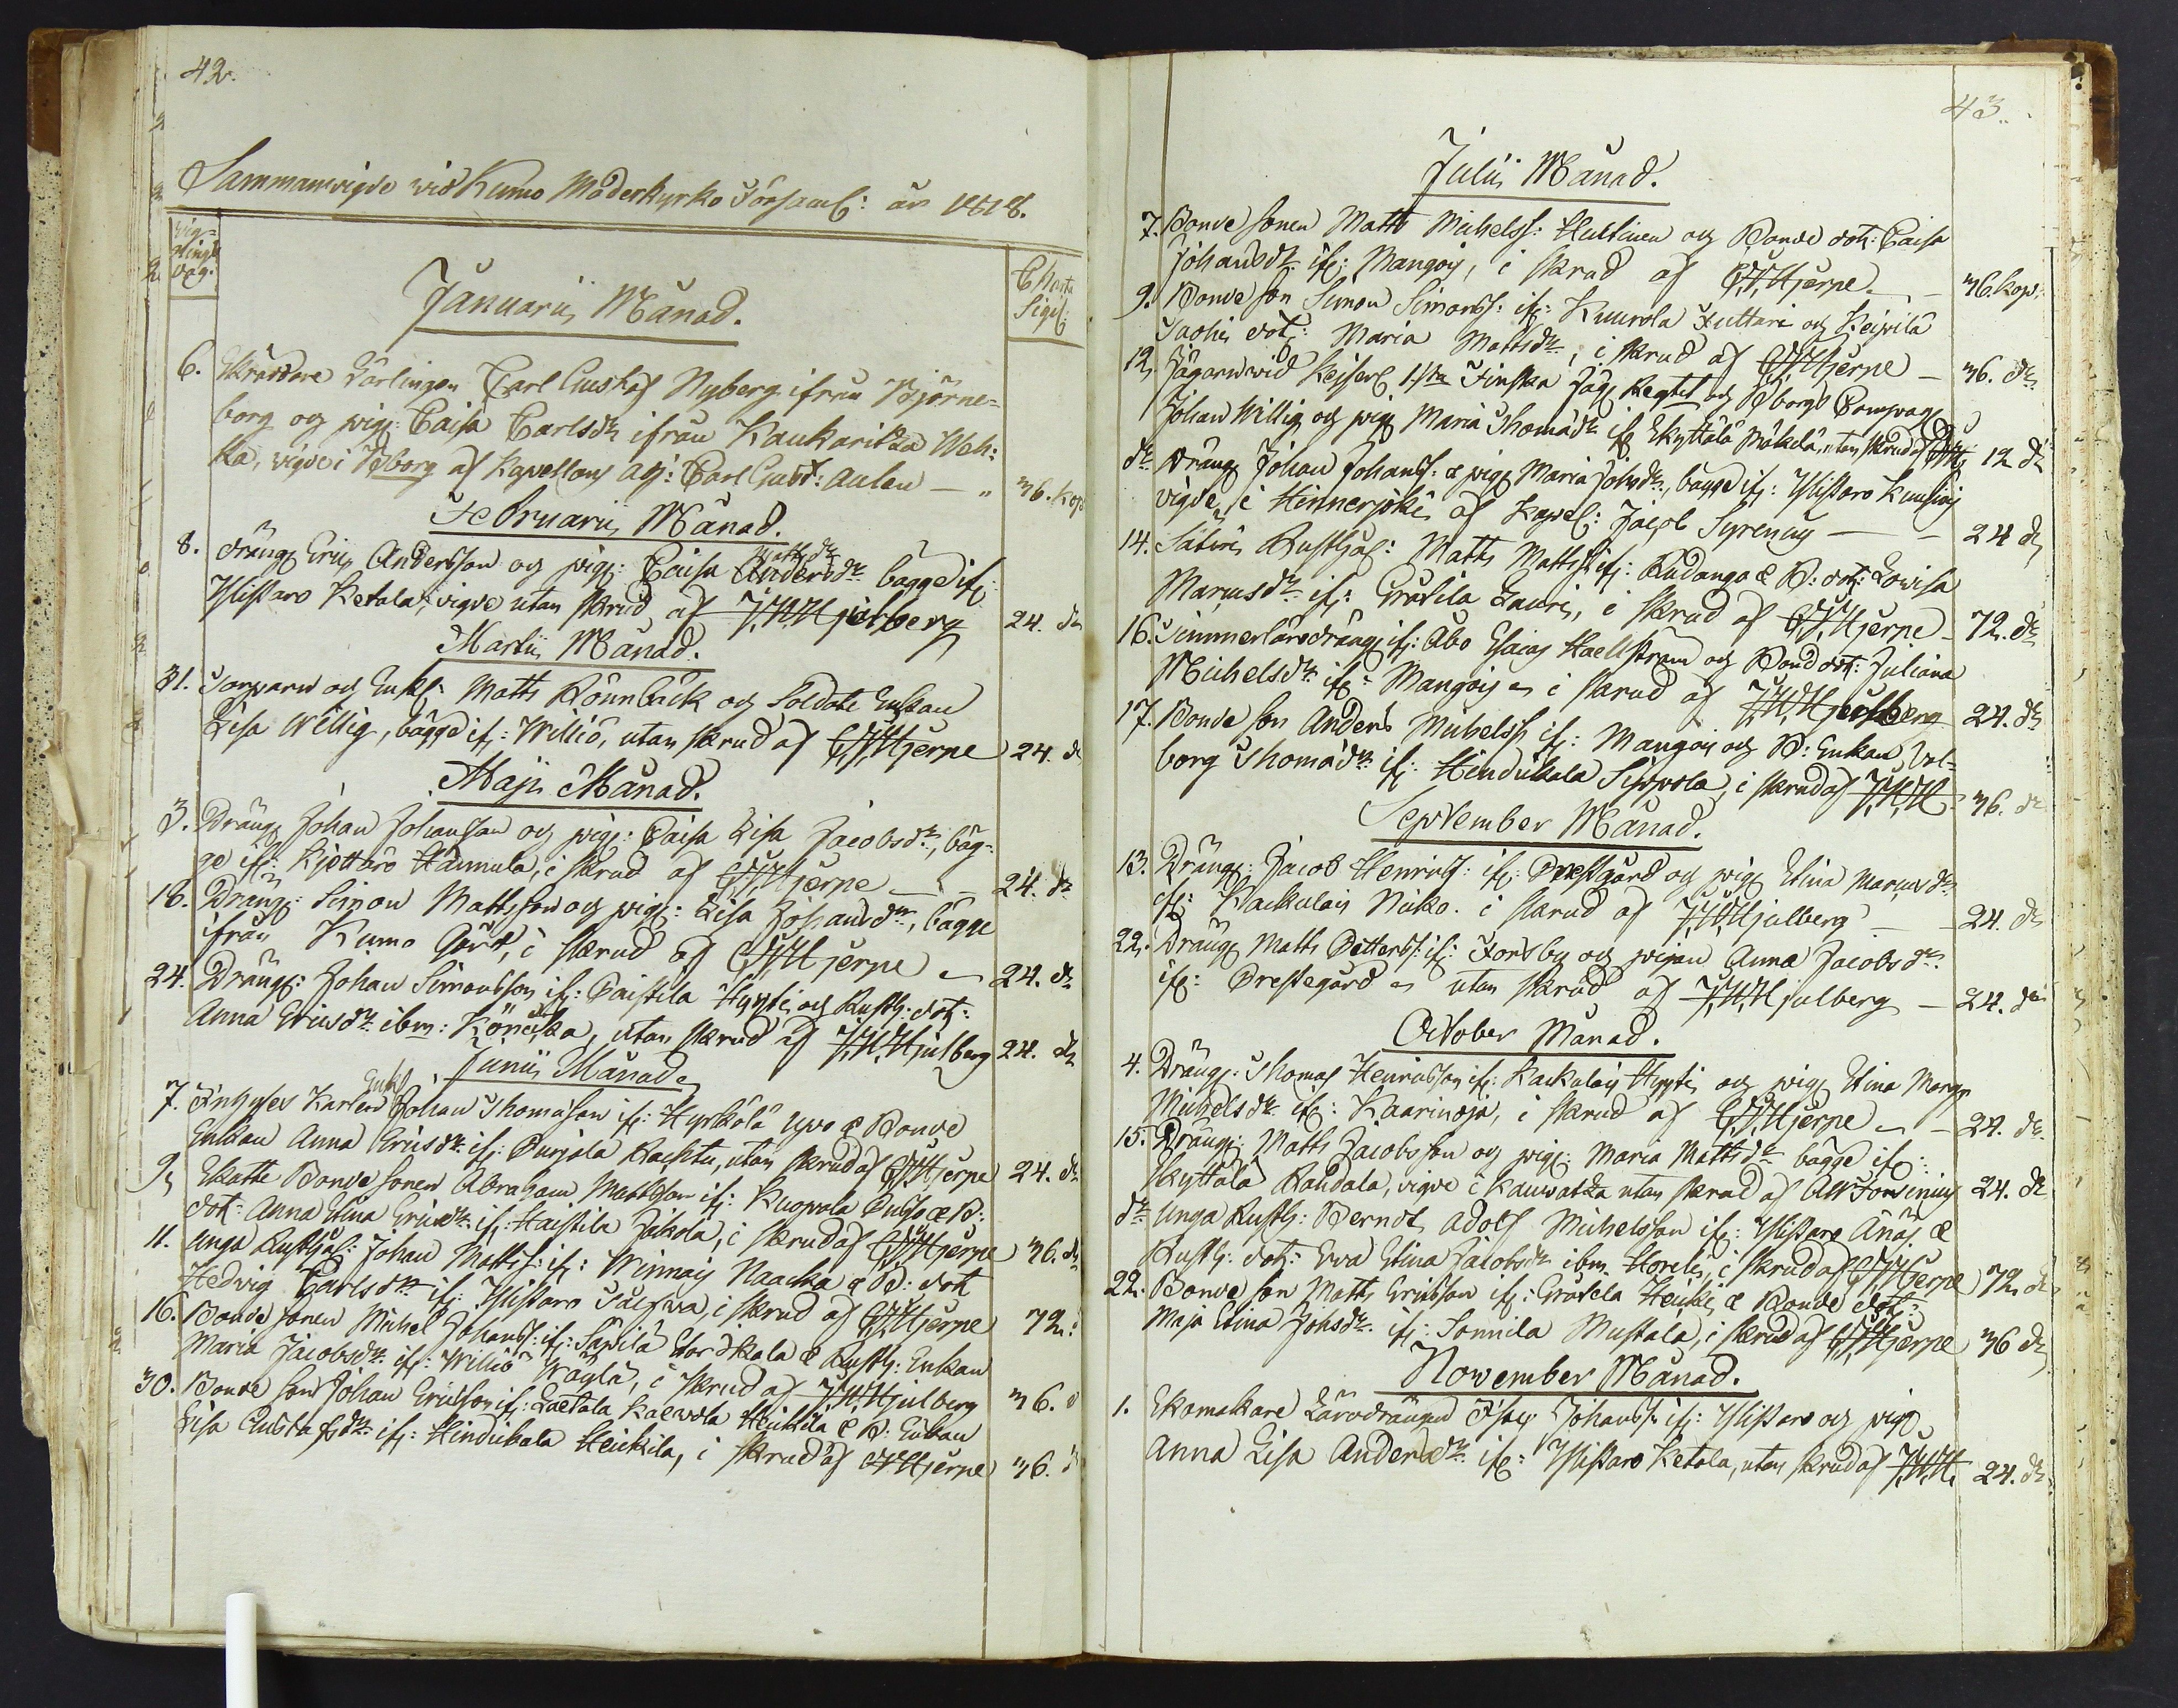 42.
Sammanvigde wid Kumo Moderkyrko Församl: år 1818.
Vig=
nings
dag.
Charta
Sigil:
Januarii Månad.
6. Skräddare Lärlingen Carl Gustaf Nyberg ifrån Björne=
borg og pig: Caisa Carlsdr ifrån Kaukaritsa Uoti=
la, vigde i Björneborg af Capellans adj: Carl Gust: Aulen — " 36. kop
Februarii Månad.
8. Dräng Eric Andersson og pig: Caisa Mattsdr Andersdr bägge if:
Ylistaro Ketola, vigde utan skrud, af J.W.Hjulberg 24. dr
Martii Månad.
31. Torparn og Enkl: Matts Rönnbäck og Soldate Enkan
Lisa Willig, bägge if: Williö, utan skrud af G.J.Hjerpe 24. dr
Maji Månad.
3. Dräng Johan Johansson og pig: Caisa Lisa Jacobsdr, bäg=
ge if: Kjettäro Hannula, i skrud af G.J.Hjerpe — 24. dr
18. Dräng: Simon Mattsson og pig: Lisa Johansdr, bägge
ifrån Kumo Gård, i skrud af G.J.Hjerpe — 24. dr
24. Dräng: Johan Simonsson if: Paistila Hyysti og Rusth: dot:
Anna Ericsdr ibm: Könickä, utan skrud af J.W.Hjulberg 24. dr
Junii Månad.
7. Inhyses Karlen Enkl: Johan Thomasson if: Hyrkölä Upo & Bonde
Enkan Anna Ericsdr if: Purjala Rachtu, utan skrud af G.J.Hjerpe 24. dr
9. Skatte Bonde Sonen Abraham Mattsson if: Kuopola & B:
dot: Anna Stina Ericsdr if: Haistila Jäkola, i skrud af G.J.Hjerpe 36. dr
11. Unga Rusthål: Johan Mattss: if: Winnais Naacka & B: dot
Hedvig Carlsdr if: Ylistaro Talfwa, i skrud af G.J.Hjerpe 72.
16. Bonde Sonen Michel Johanss: if: Säpilä Stor Skala & Rusth: Enkan
Maria Jacobsdr if: Williö Wäglä, i skrud af J.W.Hjulberg 36. d
30. Bonde Son Johan Ericsson if: Laetala Kaewola Heickilä & B: Enkan
Lisa Gustafsdr if: Hindickala Heickilä, i skrud af G.J.Hjerpe 36.
43.
Julii Månad.
7. Bonde Sonen Matts Michelss: Hultinen og Bonde dot: Caisa
Johansdr if: Mangois, i skrud af G.J.Hjerpe — 36. kop:
9. Bonde Son Simon Simonss: if: Kuurola Juttari og Keipilä
Tuohi dot: Maria Mattsdr, i skrud af G.J.Hjerpe — 36. dr
12. Jägarn wid Kejserl 1sta Finska Jäg: Regtet og Åborgs Compag:
Johan Willig og pig: Maria Thomädr if: Skyttälä Mäkelä, utan skrud af G.J.H. 12 dr
dr Dräng: Johan Johanss: & pig Maria Johsdr, bägge if: Ylistaro Kuusisi
vigde i Hinnerjoki af Kapel: Jacob Syrenius — 24 dr
14. Säteri Rusthål: Matts Mattss: if: Rudanga & B: dot: Lovisa
Marcusdr if: Gråtila Lauri, i skrud af G.J.Hjerpe — 72. dr
16. Timmerlärodräng: if: Åbo Esaias Haellström og Bond dot: Juliana
Michelsdr if: Mangois — i skrud af J.W.Hjulberg 24. dr
17. Bonde Son Anders Michelss: if: Mangois og B: Enkan Val=
borg Thomädr if: Hindickala Sippola, i skrud af J.W.H 36. dr
September Månad.
13. Dräng: Jacob Henricss: if: Prestgård og pig: Stina Marcusdr
if: Kackulais Niko. i skrud af J.W.Hjulberg — 24. dr
22. Dräng: Matts Petterss: if: Forsby og pigan Anna Jacobsdr
if: Prestegård — utan skrud af J.W.Hjulberg — 24. dr
October Månad.
4. Dräng: Thomas Henricsson if: Kackulais Hyysti og pig: Stina Marga
Michelsdr if: Kaarinoja, i skrud af G.J.Hjerpe — 24. dr
15. Dräng: Matts Jacobsson og pig: Maria Mattsdr bägge if:
Skyttälä Randala, vigde i Kauvatsa utan skrud af A.W.Forsenius 24. dr
dr Unga Rusth: Berndt Adolf Michelsson if: Ylistaro Anäs &
Rusth: dot: Eva Stina Jacobsdr ibm Horeli, i skrud af G.J.Hjerpe 72 dr
22. Bonde Son Matts Ericsson if: Gråtela Heicki & Bonde dot:
Maja Stina Johsdr if: Sonnila Mustala, i skrud af G.J.Hjerpe 36 dr
November Månad.
1. Skomakare Lärodrängen Isac Johanss: if: Ylistaro og pig:
Anna Lisa Andersdr if: Ylistaro Ketola, utan skrud af J.W.H. 24. dr